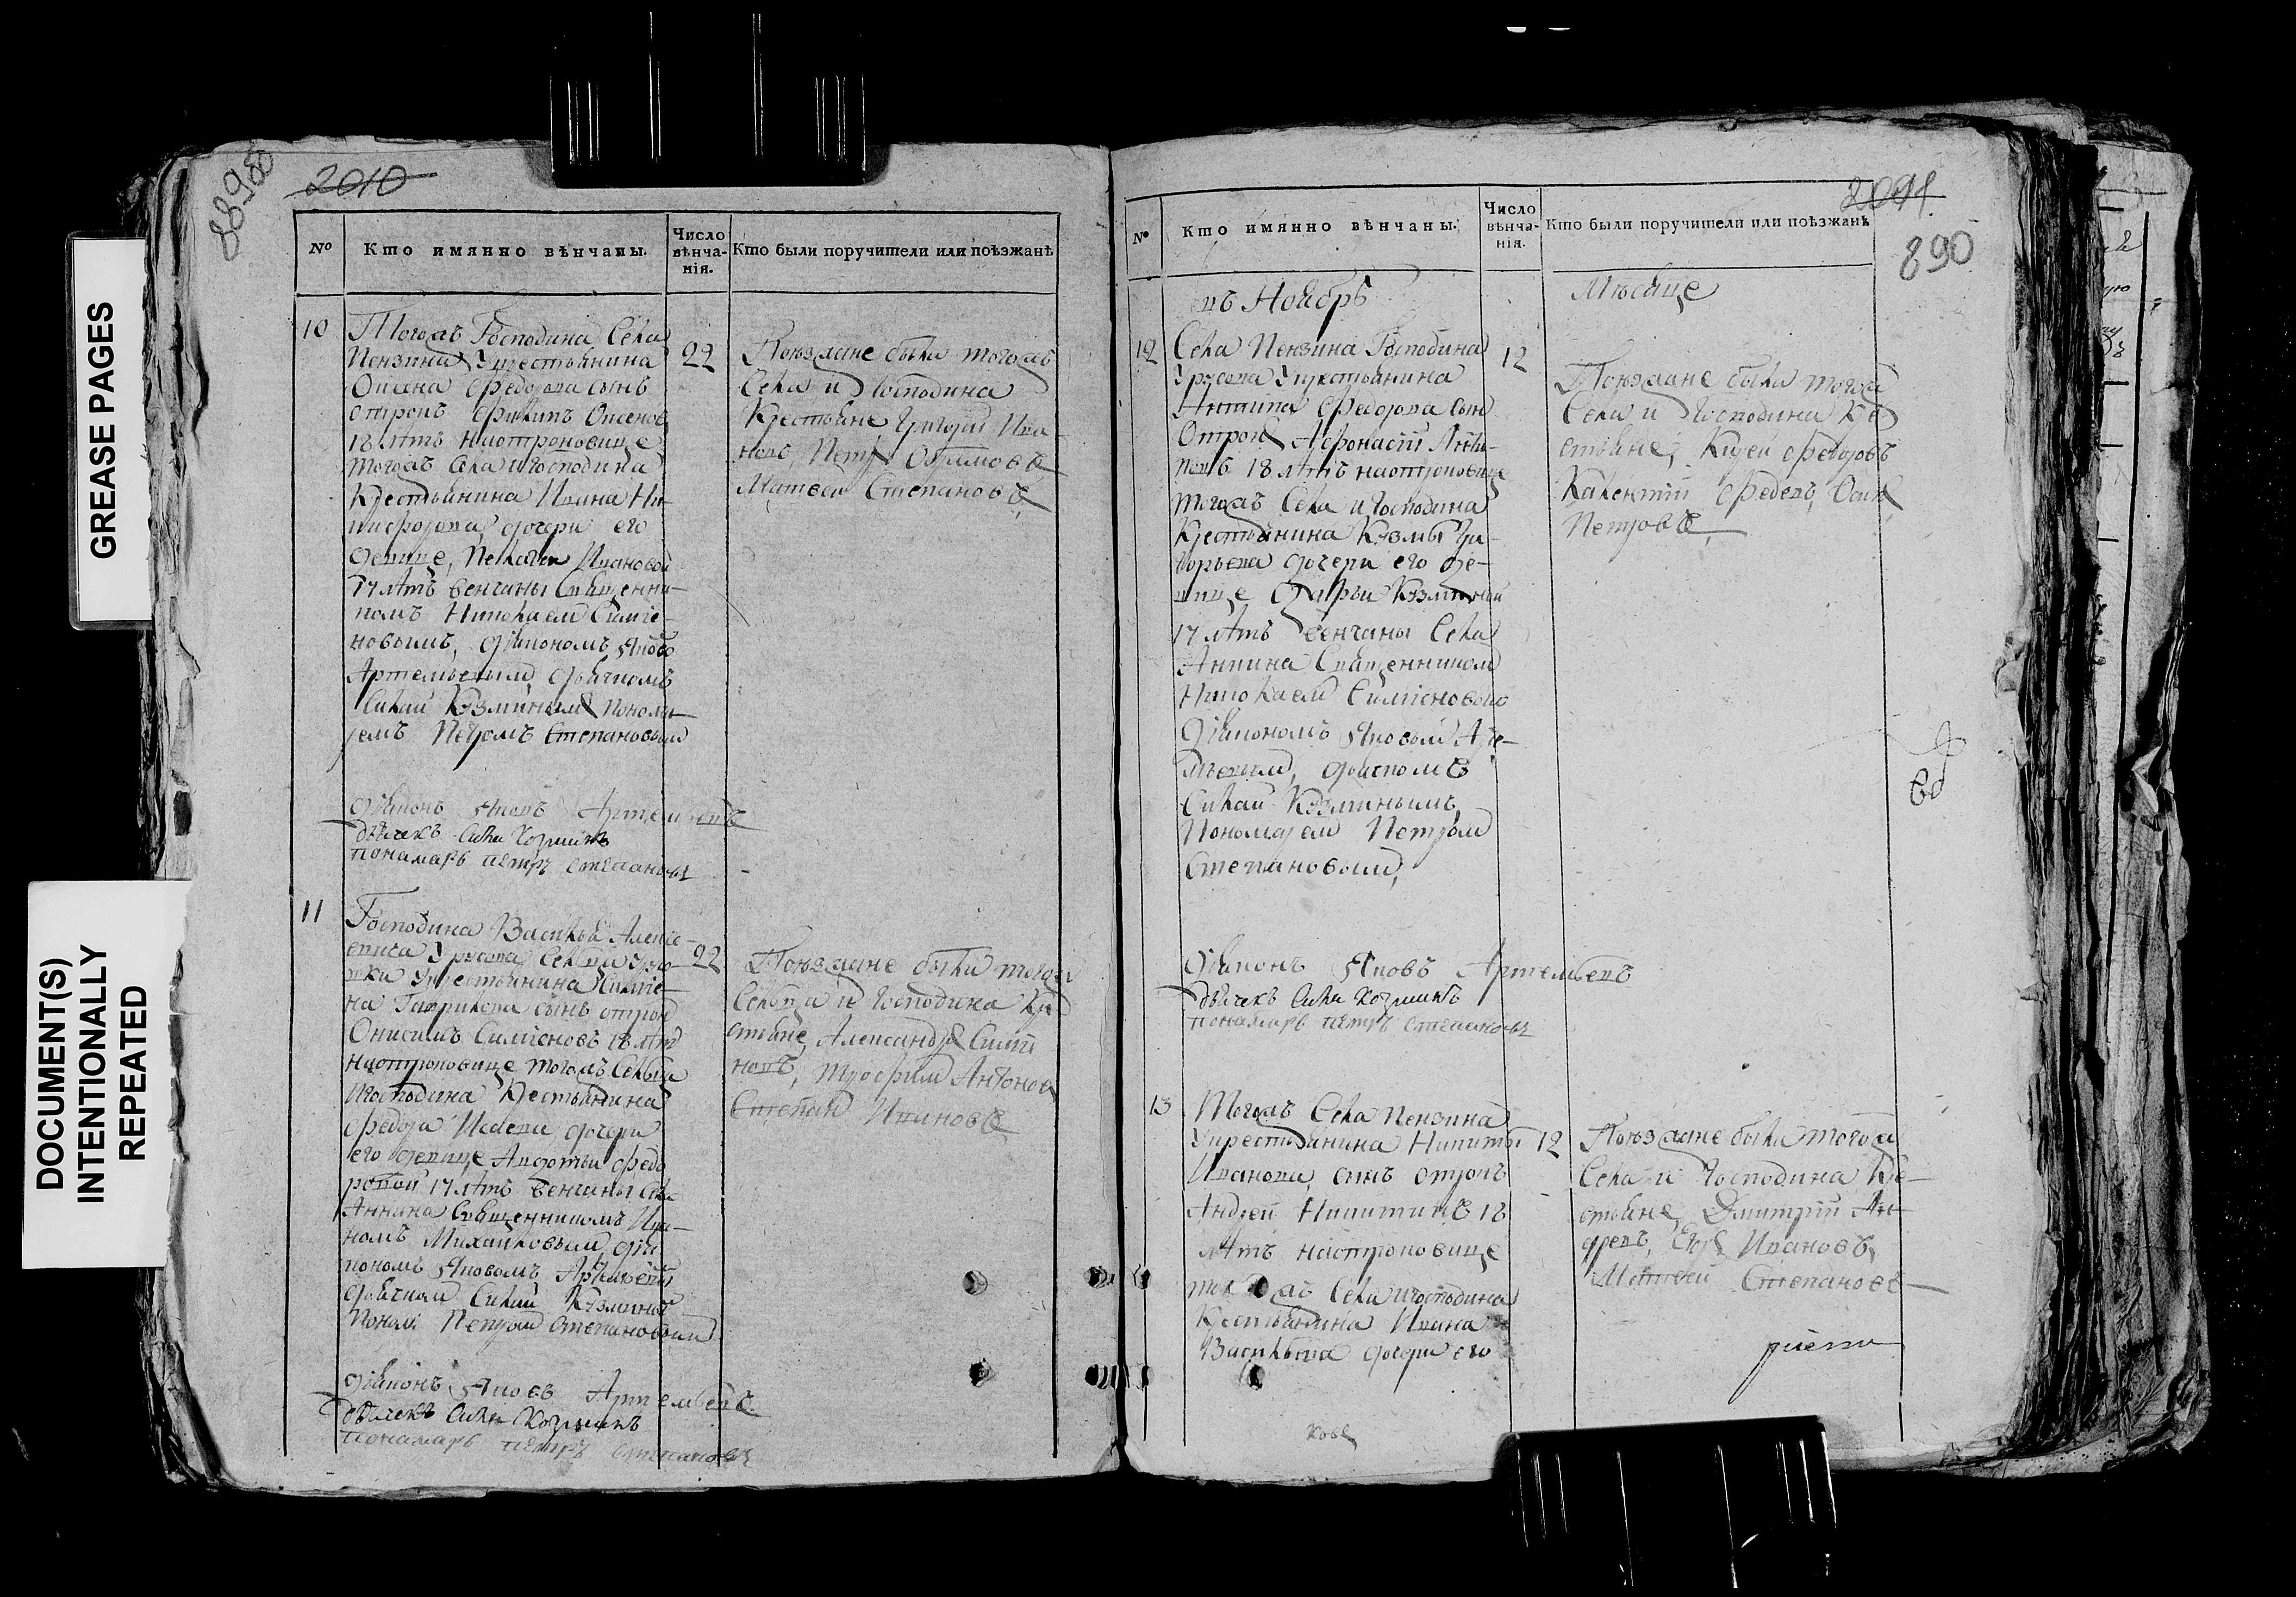 GREASE PAGES
DOCUMENT(S)
INTENTIONALLY
REPEATED
2010
№
Кто имянно вѣнчаны.
Число
вѣнча-
нія.
Кто были поручители или поѣзжанѣ
10
Тогожъ Господина Села
Пензина
Федорова сынъ
отрокъ
18 лѣтъ наотроковице
тогожъ Села и господина
Крестьянина Ивана Ни-
дочери его
девице, Пелагеи Ивановой
17 лѣтъ венчаны Священни-
комъ Николаем Симіе-
новымъ, діакономъ Яково
Артемьевым дьячкомъ
Силай Кузминым понома-
ремъ Петромъ Степановым
22
Поюзжане были тогожъ
Села и Господина
Крестьяне Григорій Ива-
новъ, Петръ
Матвеи Степановъ
діаконъ Яковъ Артемьевъ
дьячекъ Сила Козминъ
понамарь петръ степановъ
11
Господина Василья Алексе-
евича Урусова
на Гаврилова сынъ отрок
Онисимъ Симіоновъ 18 лѣт
наотроковице тогожъ Сельца
и господина Крестьянина
Федора дочери
его девице Авдотьи Федо
ровой 17 лѣтъ венчаны Села
Аннина Священникомъ Ива-
номъ Михаиловым діа
кономъ Яковомъ Артемьевы
дьячком Силай Кузминым
Поном Петром Степановым
22
Поюзжане были тогожъ
Сельца и господина Кре
стьяне, Александр Симіо
новъ, Трофим Антонов
Степан Ивановъ
діаконъ Яковъ Артемьевъ
дьячекъ Сила Козминъ
понамарь петръ степановъ
890
№
Кто имянно вѣнчаны.
Число
вѣнча-
нія.
Кто были поручители или поѣзжанѣ
въ Ноябрѣ
Мѣсяце
12
Села Пензина Господина
Урусова Укрестьянина
Антипа Федорова сын
Отрок Афонасій Анти-
повъ 18 лѣтъ наотроковице
тогожъ Села и господина
Крестьянина Кузмы Гри-
горьева дочери его де-
вице Дарьи Кузминой
17 лѣтъ венчаны Села
Аннина Священником
Николаем Симіоновым
Діакономъ Яковым Арте-
мьевым, дьячкомъ
Силай Кузминымъ
Пономарем Петром
Степановым,
12
Поюзжане были тогож
Села и Господина Кре
стьяне, Федоровъ
Калентій Осип
Петровъ,
діаконъ Яковъ Артемьевъ
дьячекъ Сила Козминъ
понамарь петръ степановъ
13
Тогожъ Села Пензина
Укрестьянина Никиты
Иванова сынъ отрокъ
Андрей Никитинъ 18
лѣтъ наотроковице
Села и господина
Крестьянина Ивана
Васильева дочери его
12
Поюзжане были тогож
Села и Господина Кре-
стьяне, Дмитрій Ан-
дреевъ, Егор Ивановъ,
Матвей Степановъ